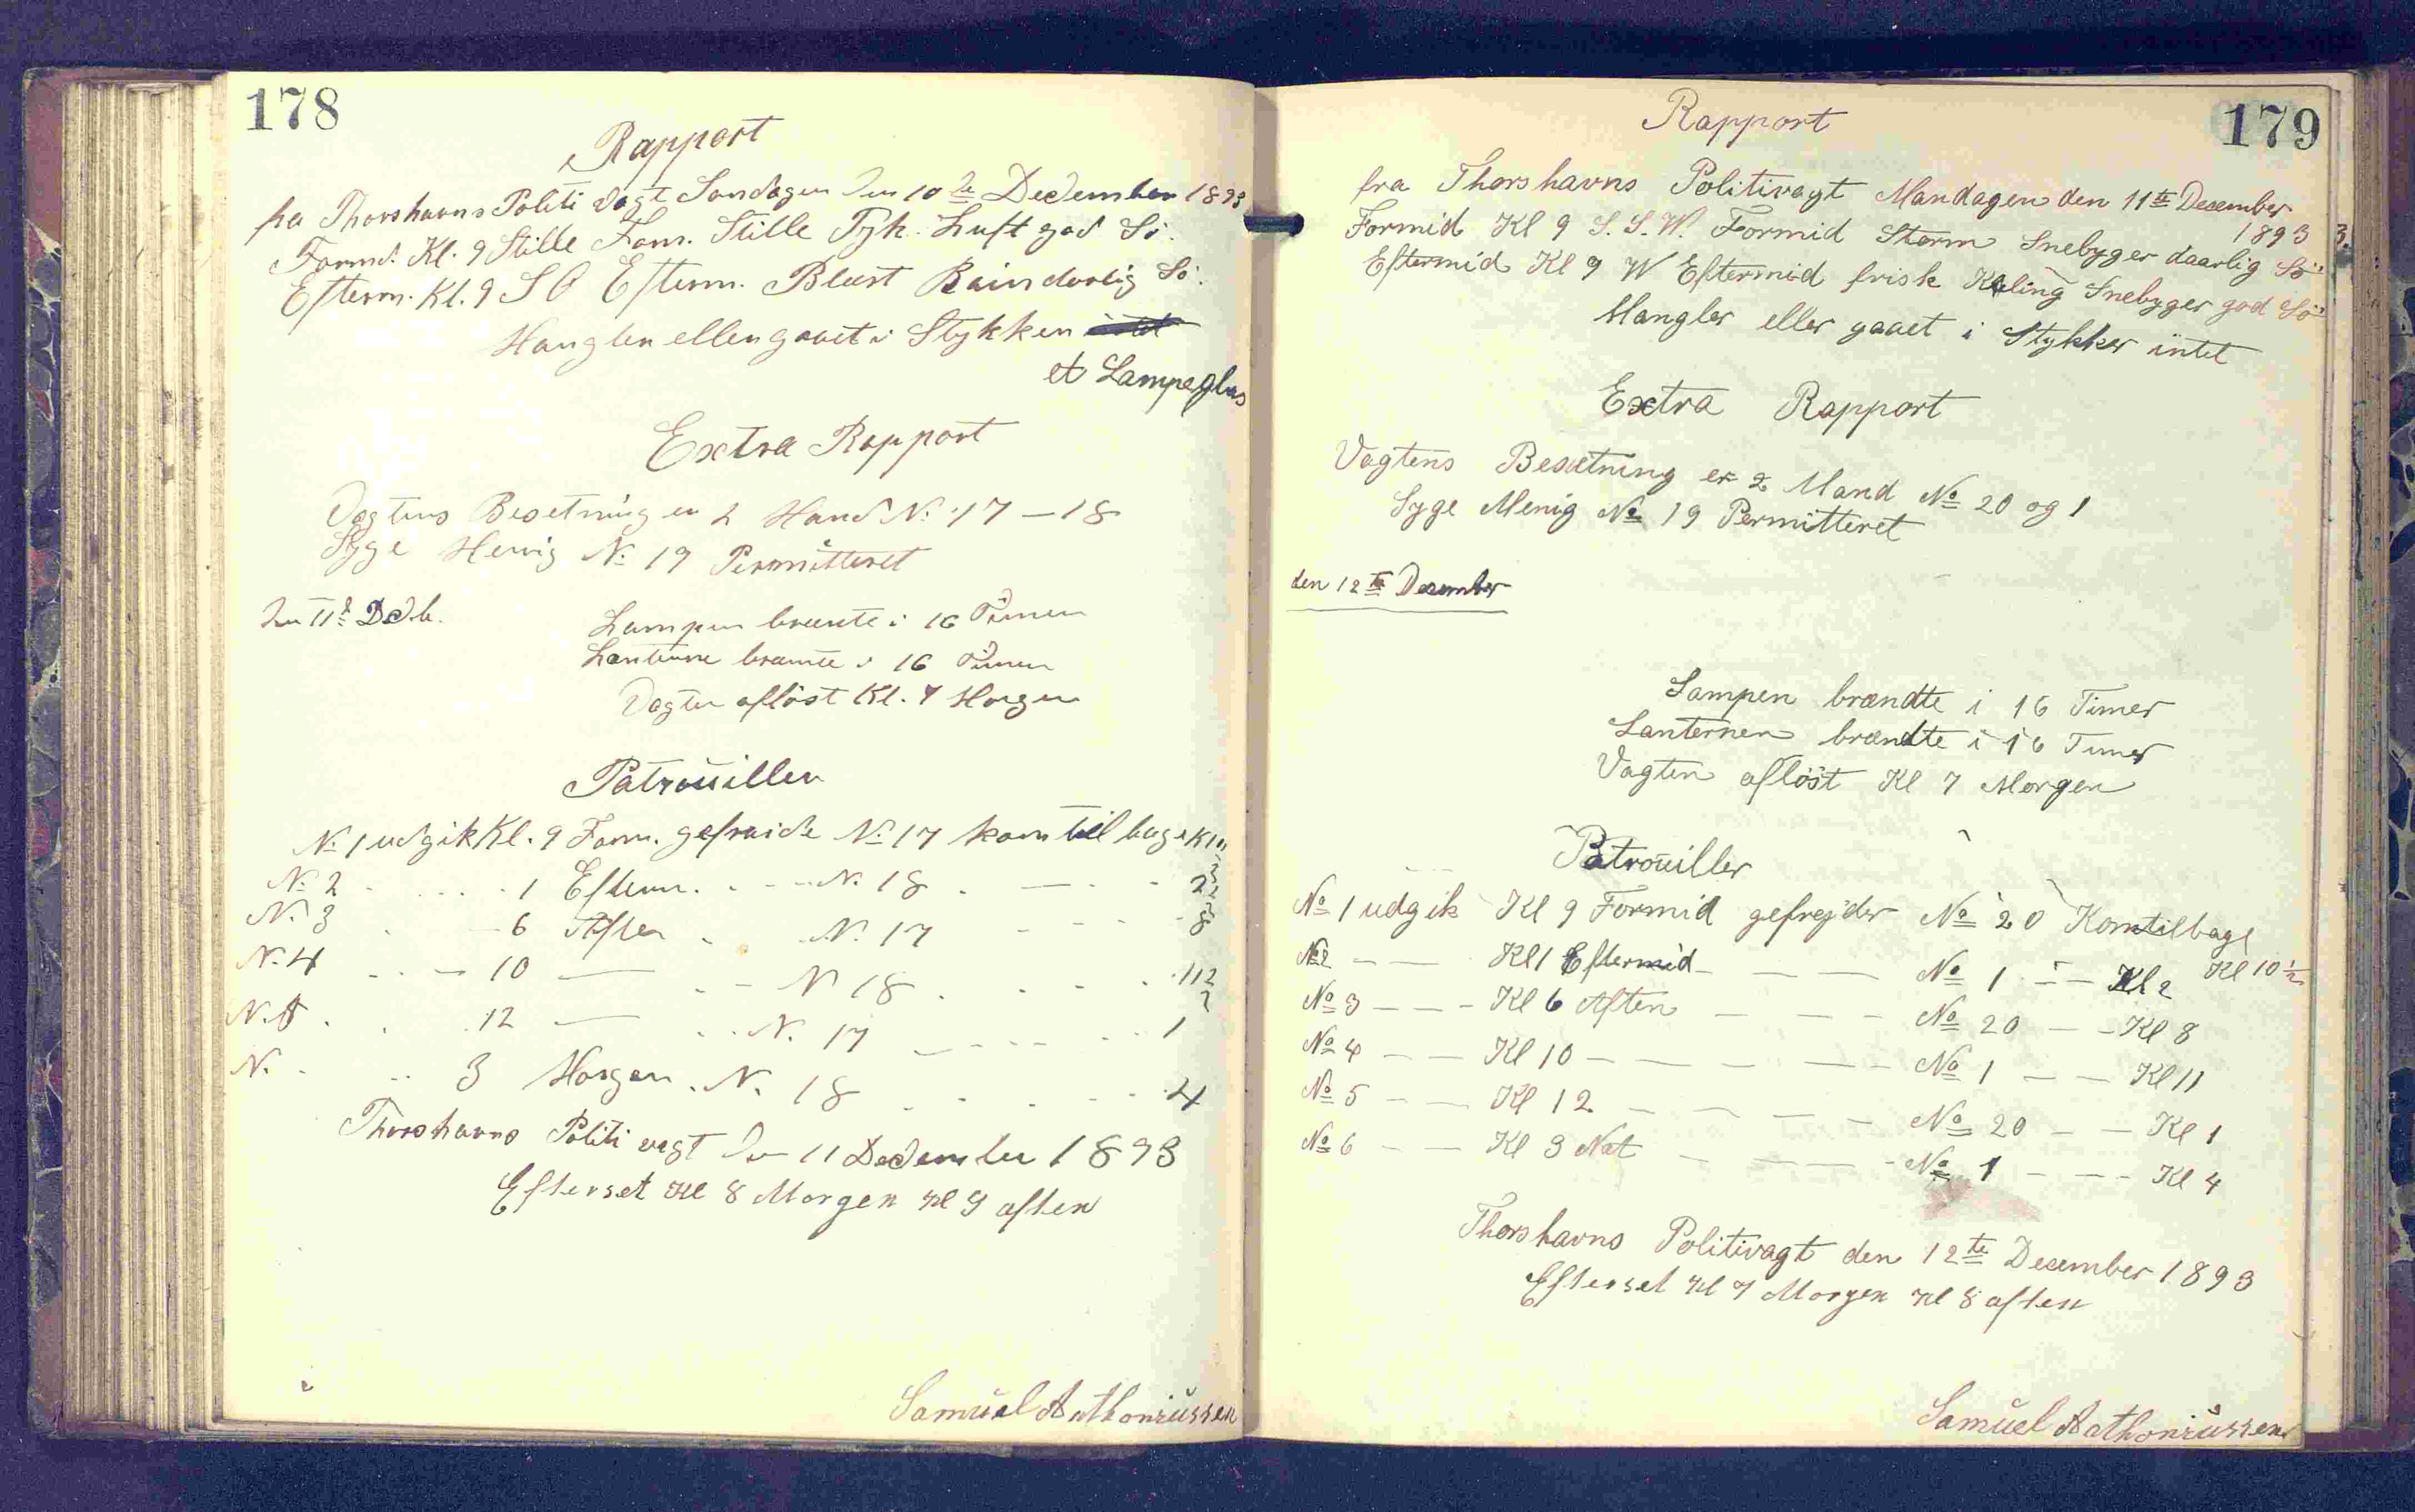 178
Rapport
fra Thorshavns Politi Vagt Søndagen den 10de December 1893
Formd. Kl. 9 Stille Form. Stille Tyk Luft god Sö.
Efterm. Kl. 9 S O Efterm. Blæst Rain dorlig Sö.
Mangler eller gaaet i Stykker
et Lampeglas
Extra Rapport
Vagtens Besetning er 2 Mand No. 17 – 18
Syge Menig No 19 Permitteret
den 11t Decb.
Lampen brænte i 16 Timer
Lanterne brænte i 16 Timer
Vagten aflöst Kl. 7 Morgen
Patrouiller
No 1 udgik Kl. 9 Form. gefraide No 17 kom tilbage Kl
No 2 - - - - 1 Efterm. - - - No 18 - — - - 2
No. 3 - - 6 Aften - No. 17 - - - 8
No. 4 - - — 10 — - - No 18 - - - - 11
No. 5 - - 12 — - - No. 17 - - - - 1
No. - - 3 Morgen. No. 18 - - - - 4
Thorshavns Politi vagt den 11 December 1893
Efterset Kl 8 Morgen Kl 9 aften
Samuel Anthoniussen
179
Rapport
fra Thorshavns Politivagt Mandagen den 11te December
1893
Formid Kl 9 S. S. W. Formid Storm Snebyger daarlig Sö
Eftermid Kl 9 W Eftermid frisk Kuling Snebyger god Sö
Mangler eller gaaet i Stykker intet
Extra Rapport
Vagtens Besætning er 2 Mand No 20 og 1
Syge Menig No 19 Permitteret
den 12te December
Lampen brændte i 16 Timer
Lanternen brændte i 16 Timer
Vagten aflöst Kl 7 Morgen
Patrouiller
No 1 udgik Kl 9 Formid gefrejder No 20 Kom tilbage
Kl 10 1/2
No 2 — — Kl 1 Eftermid — — — No 1 — — Kl 2
No 3 — — - Kl 6 Aften — — — No 20 — — Kl 8
No 4 — — Kl 10 — — — — — No 1 — — Kl 11
No 5 — — Kl 12 — — — — — No 20 — — Kl 1
No 6 — — Kl 3 Nat — — — - No 1 — — - Kl 4
Thorshavns Politivagt den 12te December 1893
Efterset Kl 7 Morgen Kl 8 aften
Samuel Anthoniussen